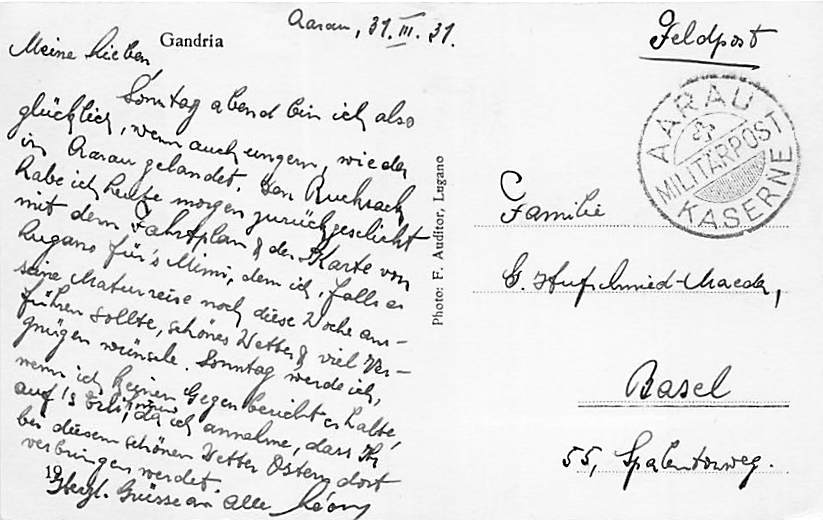 Aarau, 31. III. 31.
Gandria
Meine Lieben,
Sonntag abend bin ich also
glücklich, wenn auch ungern, wieder
in Aarau gelandet. Den Rucksack
habe ich heute morgen zurückgeschickt
mit dem Fahrtplan & der Karte von
Lugano für's Mimi, dem ich, falls es
seine Maturreise noch diese Woche aus-
führen sollte, schönes Wetter & viel Ver-
gnügen wünsche. Sonntag werde ich,
wenn ich keinen Gegenbericht erhalte,
auf 's Örli, da ich annehme, dass Ihr
bei diesem schönen Wetter Ostern dort
verbringen werdet.
19
Herzl. Grüsse an alle Léony
Photo: F. Auditor, Lugano
Feldpost
AARAU
MILITÄRPOST
KASERNE
Familie
G. Hufschmied-Maeder,
Basel
55, Spalentorweg.